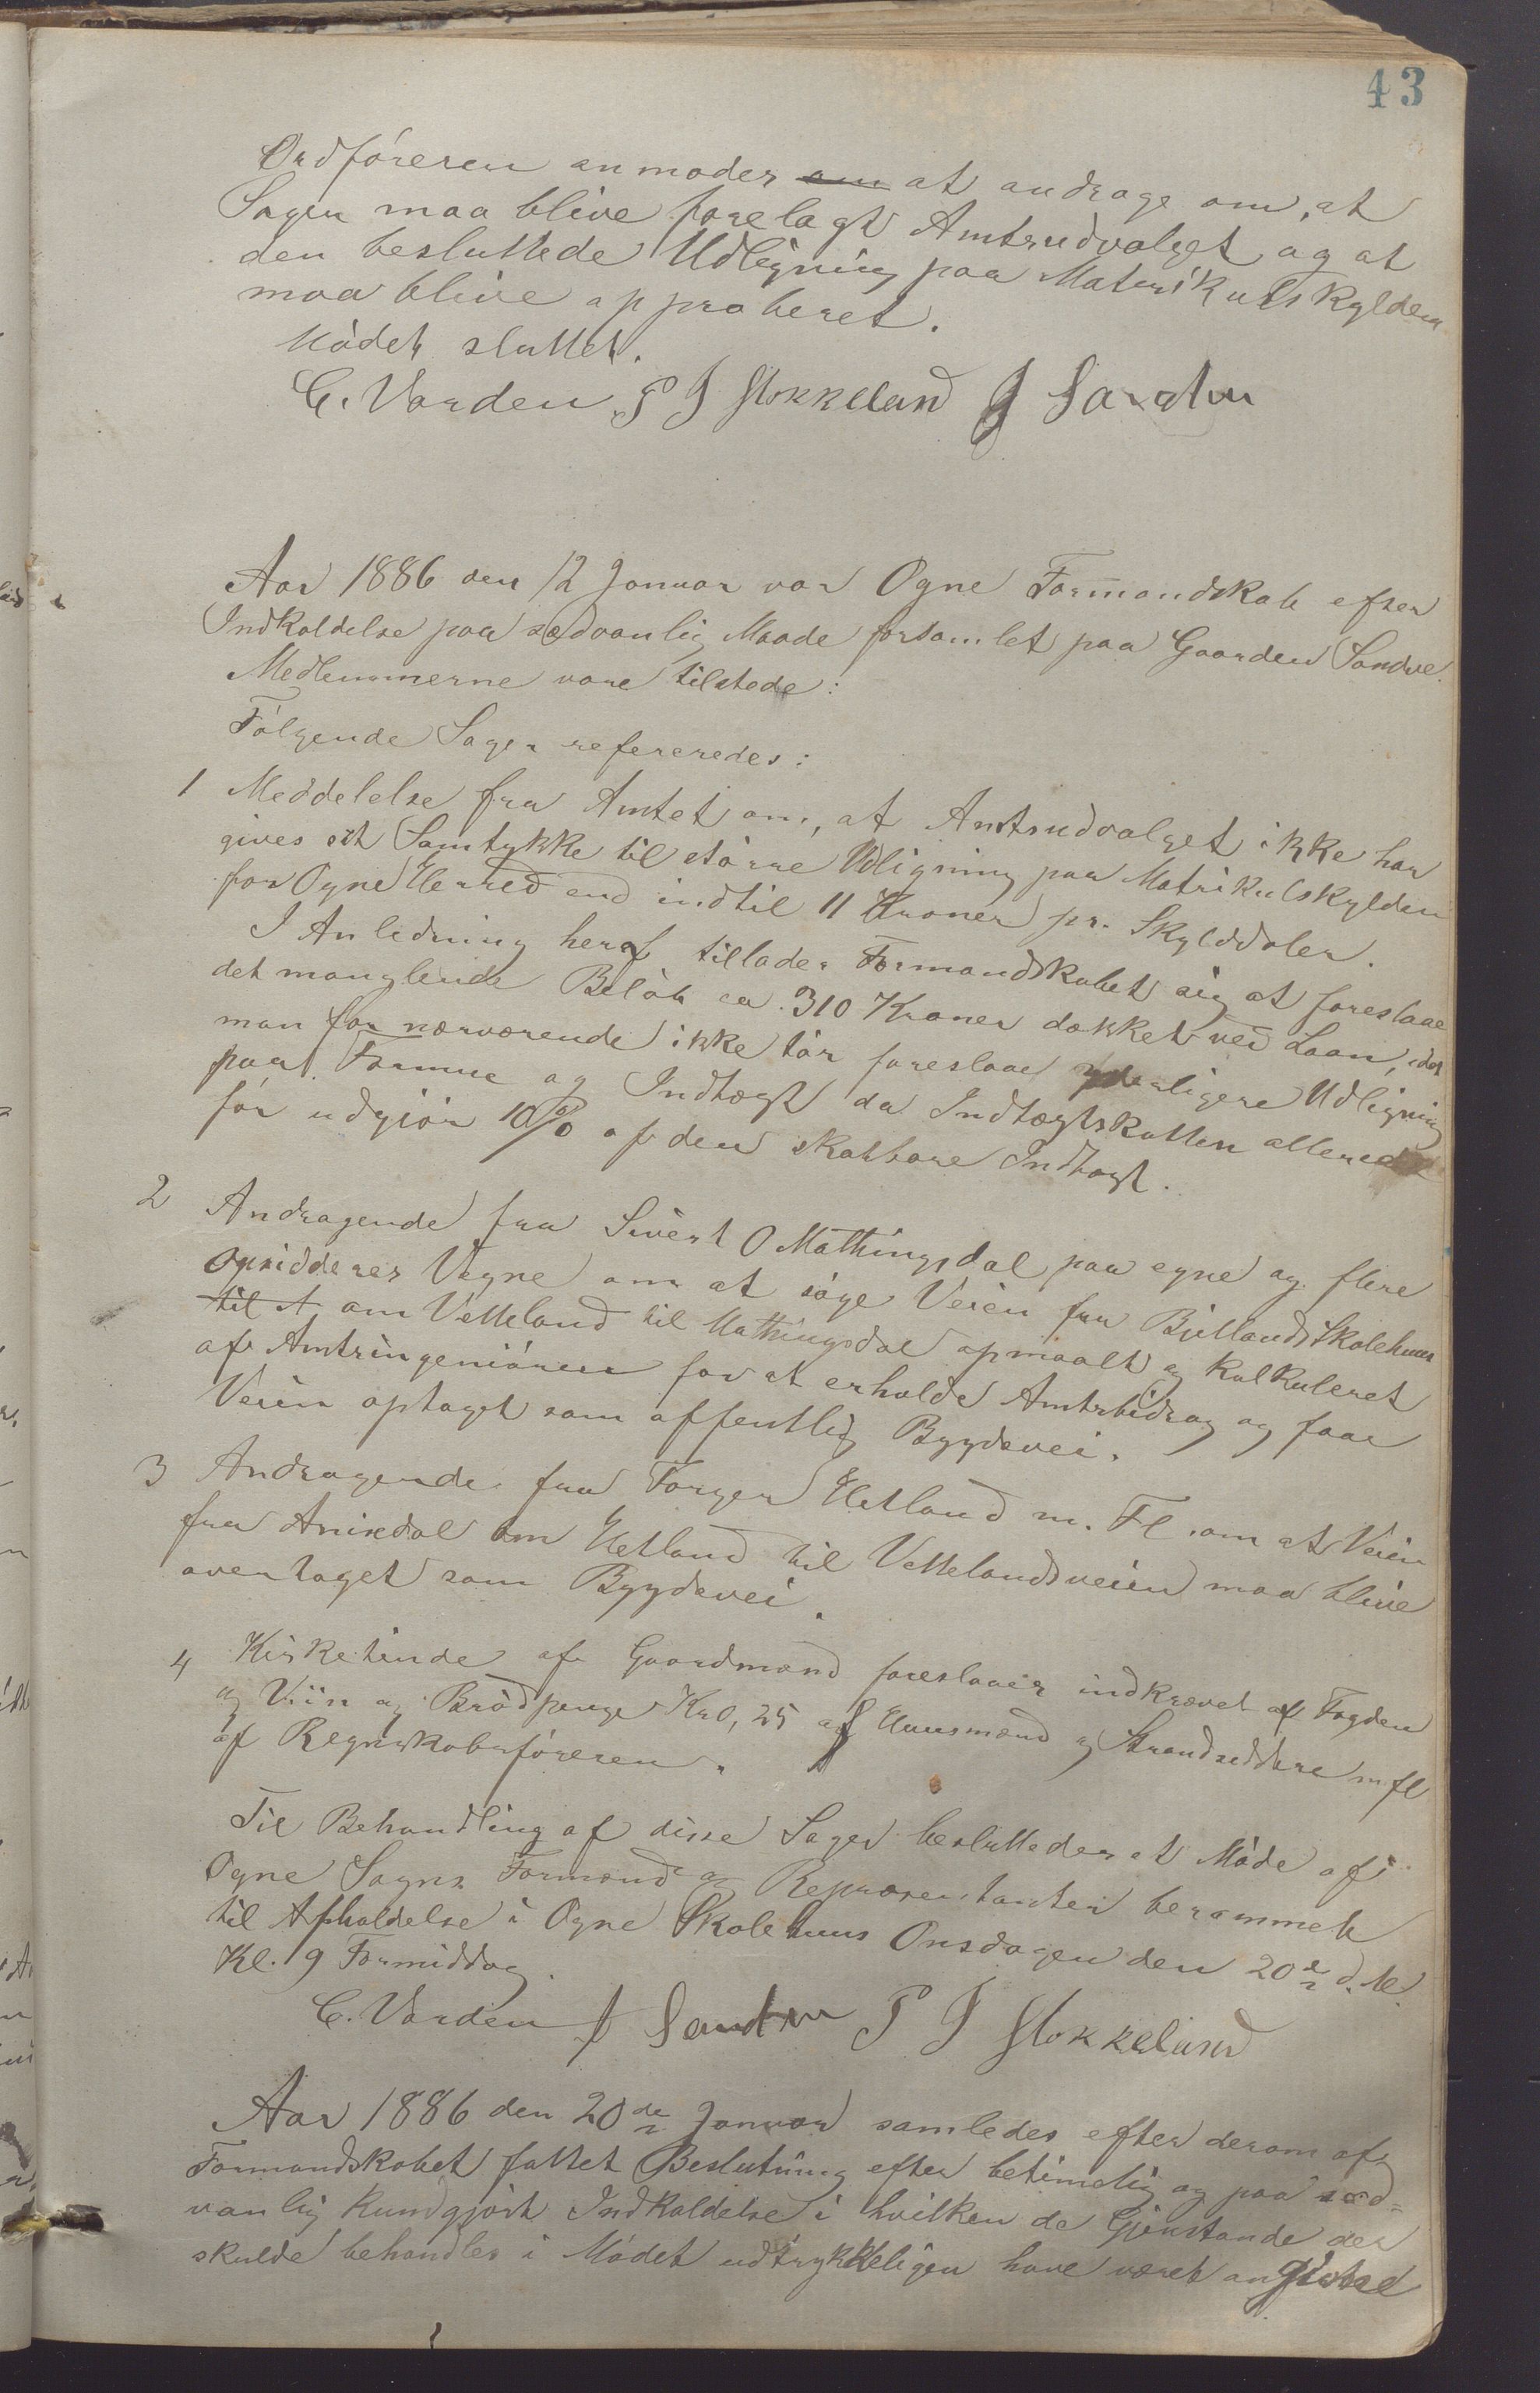 43
Ordföreren anmodes om at andrage om, at
Sagen maa blive forelagt Amtsudvalget og at
den besluttede Udligning paa Matrikulskylden
maa blive approberet.
Mödet sluttet.
C. Varden P J Stokkeland J Sandve
Aar 1886 den 12 Januar var Ogne Formandskab efter
Indkaldelse paa sædvanlig Maade forsamlet paa Gaarden Sandve.
Medlemmerne vare tilstede:
Fölgende Sager refereredes:
1 Meddelelse fra Amtet om, at Amtsudvalget ikke har
gives sit Samtykke til större Udligning paa Matrikulskylden
for Ogne Herred end indtil 11 Kroner pr. Skylddaler.
I Anledning heraf tillader Formandskabet sig at foreslaae
det manglende Belöb ca. 310 Kroner dækket ved Laan, idet
man for nærværende ikke tör foreslaae yderligere Udligning
paa Formue og Indtægt da Indtægtskatten allerede
för udgjör 10% af den skatbare Indtægt.
2 Andragende fra Sivert O Mathingsdal paa egne og flere
Opsidderes Vegne om at söge Veien fra Bjellands Skolehuus
til A om Vetteland til Mathingsdal opmaalt og kalkuleret
af Amtsingeniören for at erholde Amtsbidrag og faae
Veien optaget som offentlig Bygdevei.
3 Andragende fra Torger Hetland m. Fl. om at Veien
fra Anisdal om Hetland til Vettelandsveien maa blive
overtaget som Bygdevei.
4 Kirketiende af Gaardmænd foreslaaes indkrævet af Fogden
og Viin og Brödpenge Kr 0,25 af Huusmænd og Strandsiddere m. fl
af Regnskabsföreren.
Til Behandling af disse Sager besluttedes et Möde af
Ogne Sogns Formænd og Repræsentanter berammet
til Afholdelse i Ogne Skolehuus Onsdagen den 20de d. M.
Kl. 9 Formiddag.
C. Varden J Sandve P J Stokkeland
Aar 1886 den 20de Januar samledes efter derom af
Formandskabet fattet Beslutning efter betimelig og paa sæd-
vanlig kundgjort Indkaldelse i hvilken de Gjenstande der
skulde behandles i Mödet udtrykkeligen have været angivne